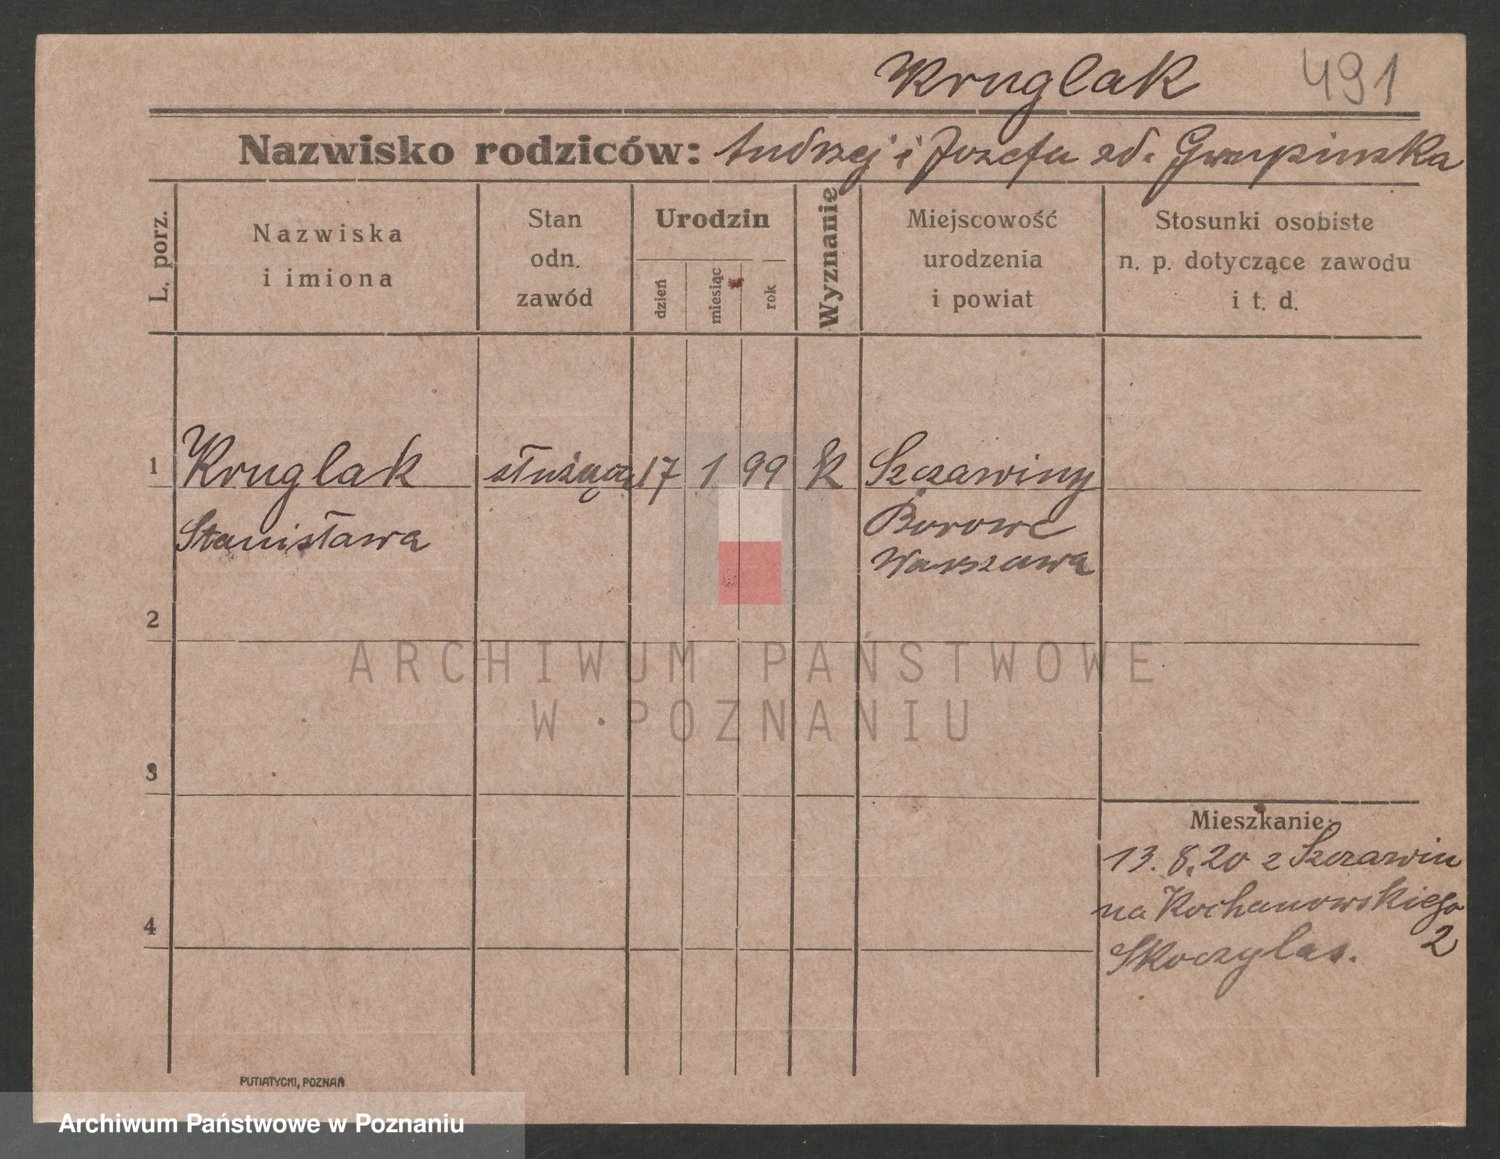 Kruglak 491
Nazwisko rodziców: Andrzej i Józefa zd.
L. porz.
Nazwiska
i imiona
Stan
odn.
zawód
Urodzin
dzień
miesiąc
rok
Wyznanie
Miejscowość
urodzenia
i powiat
Stosunki osobiste
n. p. dotyczące zawodu
i t. d.
1 Kruglak służąca 17 1 99 k Szczawiny
Stanisława Borowe
Warszawa
2
ARCHIWUM PAŃSTWOWE
W POZNANIU
3
Mieszkanie:
13.8.20 z Szczawin
na Kochanowskiego
2
Skoczylas.
4
PUTIATYCKI, POZNAŃ
Archiwum Państwowe w Poznaniu